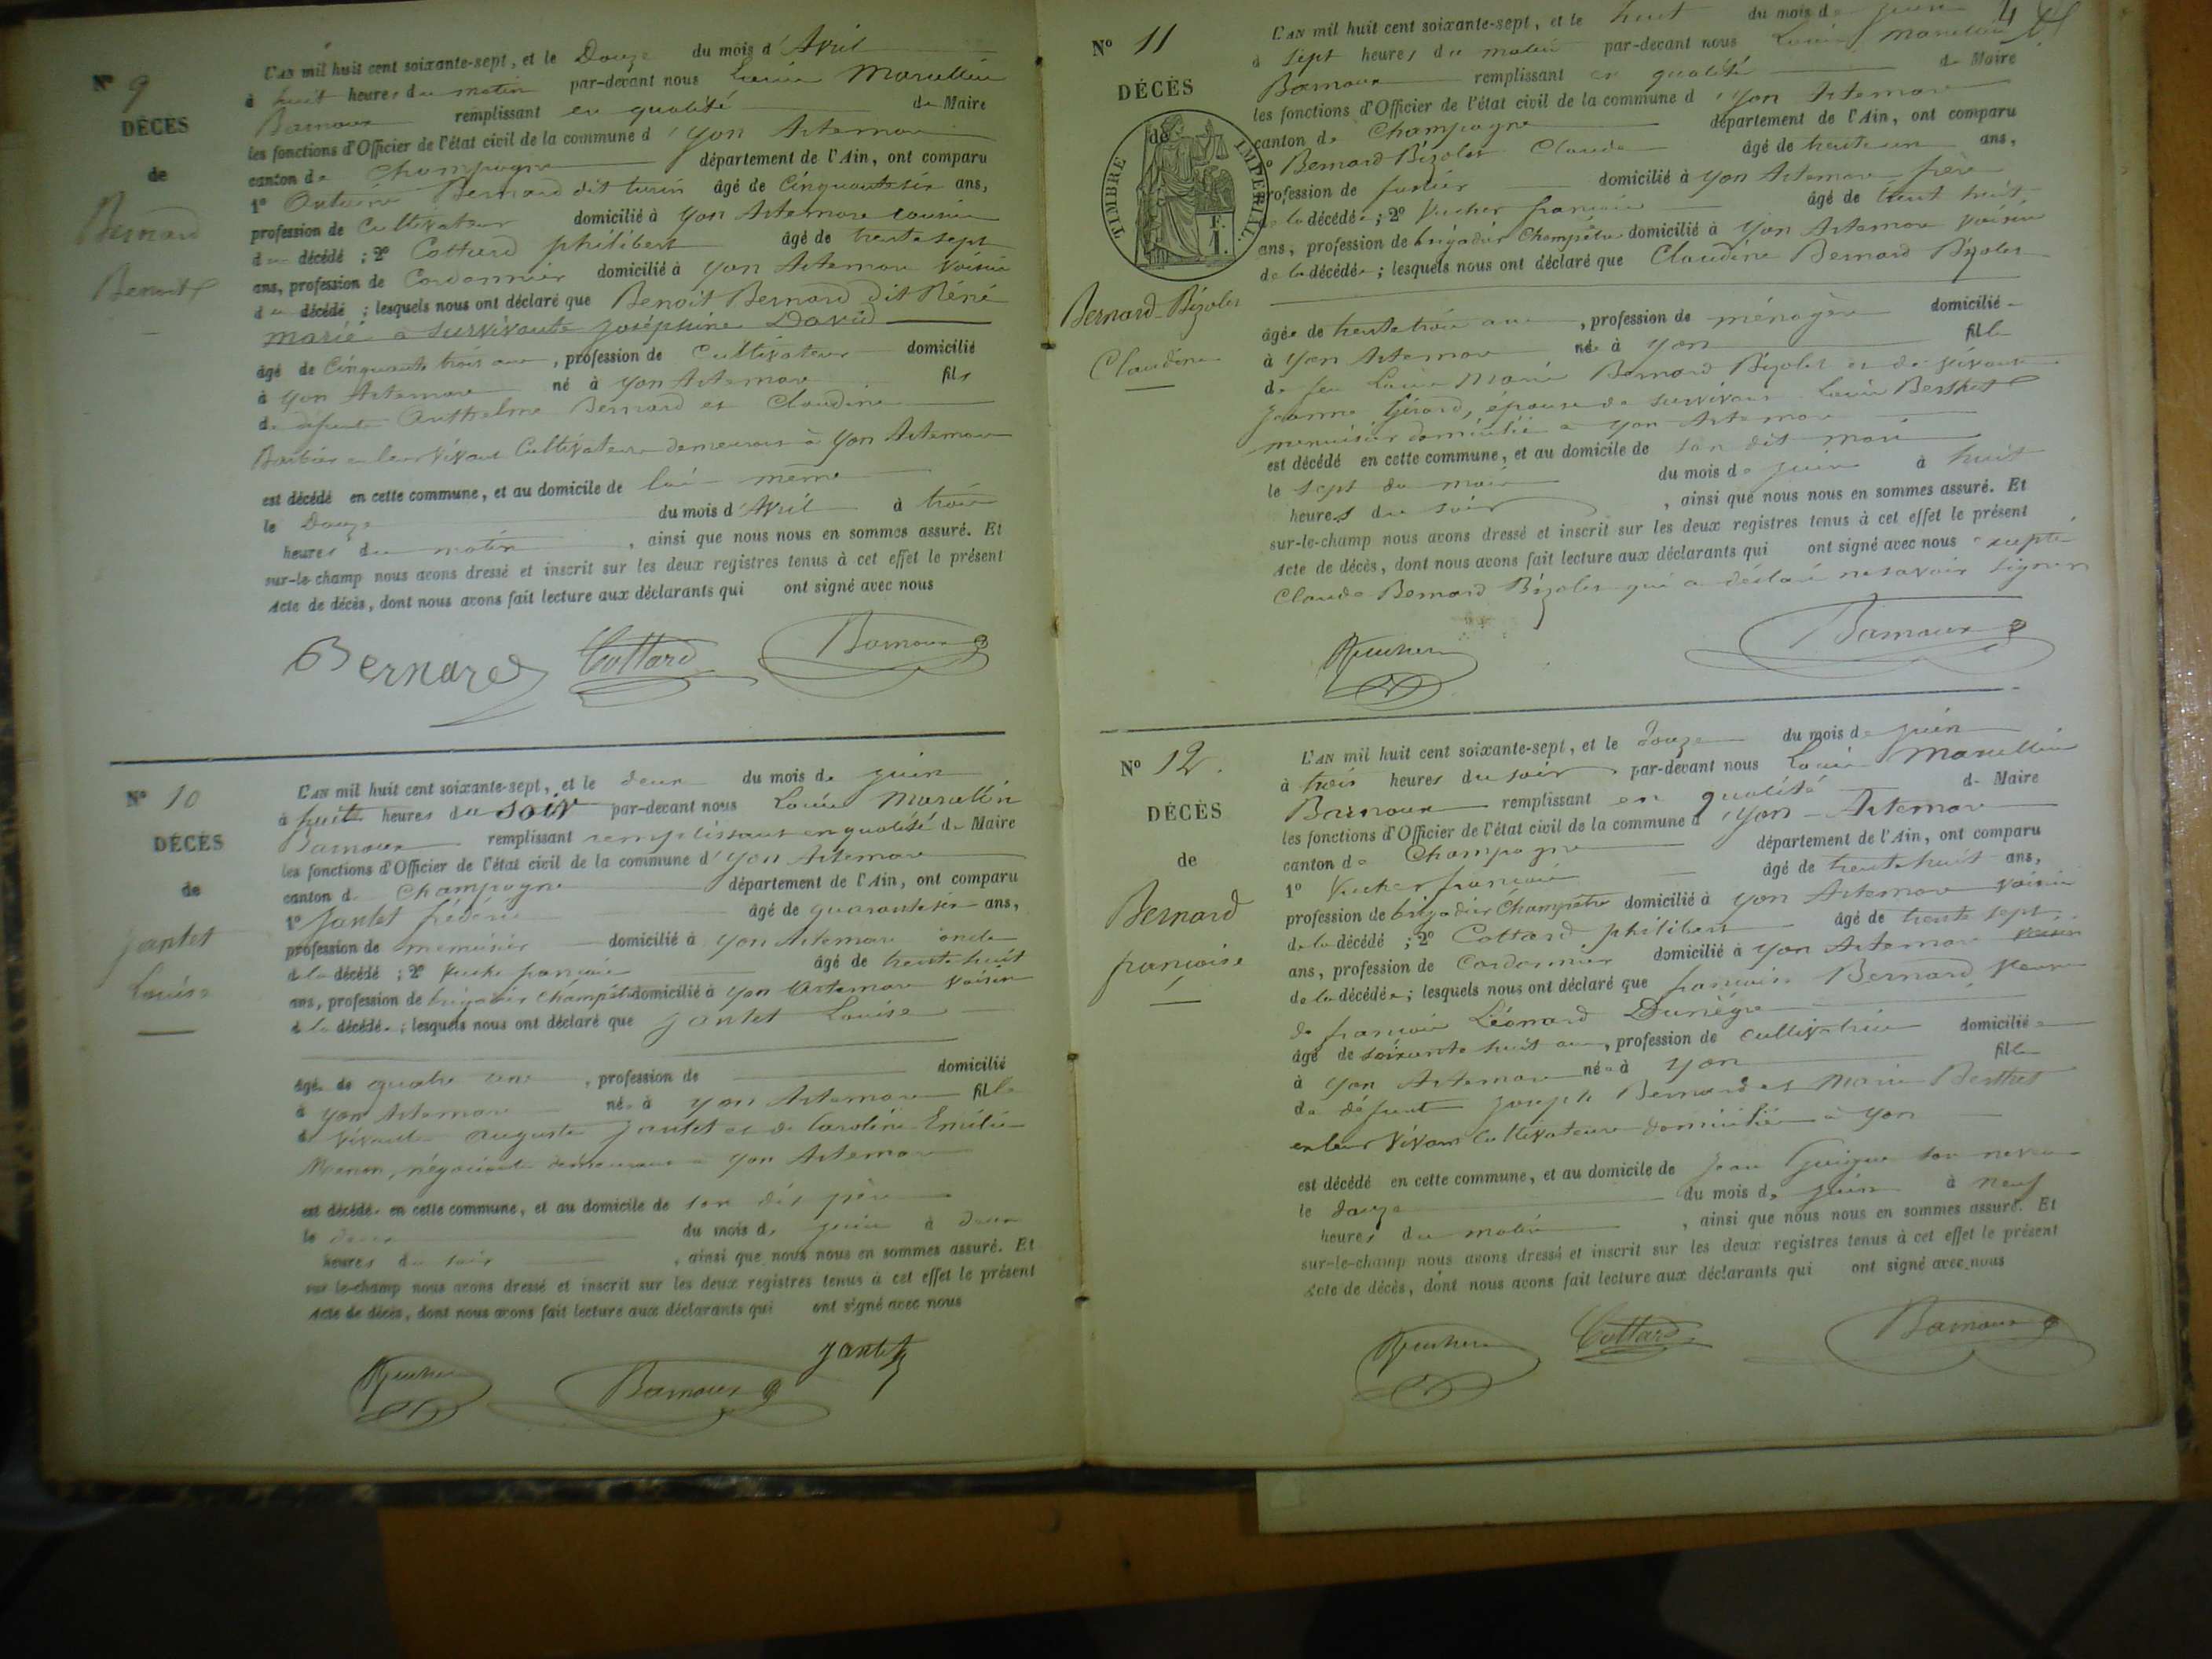 N° 9
DÉCÈS
de
Bernard
Benoit
L'AN mil huit cent soixante-sept, et le Douze du mois d'Avril
à huit heures du matin par-devant nous Louis Marcellin
Barnoux remplissant en qualité de Maire
les fonctions d'Officier de l'état civil de la commune d'yon Artemare
canton de Champagne département de l'Ain, ont comparu
1° Bernard dit turin âgé de Cinquante six ans,
profession de Cultivateur domicilié à yon Artemare cousin
du décédé ; 2° Cottard philibert âgé de trente sept
ans, profession de Cordonnier domicilié à yon Artemare voisin
du décédé ; lesquels nous ont déclaré que Benoit Bernard dit Réné
marié a survivante joséphine David
âgé de Cinquante trois ans, profession de Cultivateur domicilié
à yon Artemare né à yon Artemare fils
de défunts Anthelme Bernard et Claudine
Barbier en leur vivant Cultivateurs demeurant à yon Artemare
est décédé en cette commune, et au domicile de lui même
le Douze du mois d'Avril à trois
heures du matin, ainsi que nous nous en sommes assuré. Et
sur-le-champ nous avons dressé et inscrit sur les deux registres tenus à cet effet le présent
Acte de décès, dont nous avons fait lecture aux déclarants qui ont signé avec nous
Bernard Cottard Barnoux
N° 10
DÉCÈS
de
jantet
Louise
L'AN mil huit cent soixante-sept, et le deux du mois de juin
à huit heures du soir par-devant nous Louis Marcellin
Barnoux remplissant remplissant en qualité de Maire
les fonctions d'Officier de l'état civil de la commune d'yon Artemare
canton de Champagne département de l'Ain, ont comparu
1° jantet frédéric âgé de quarante six ans,
profession de menuisier domicilié à yon Artemare oncle
de la décédé ; 2° françois âgé de trente huit
ans, profession de brigadier Champêtre domicilié à yon Artemare voisin
de la décédée ; lesquels nous ont déclaré que jantet Louise
âgée de quatre ans, profession de domicilié
à yon Artemare née à yon Artemare fille
de vivants auguste jantet et de Caroline Emélie
négociants demeurant à yon Artemare
est décédée en cette commune, et au domicile de son dit père
le deux du mois de juin à deux
heures du soir, ainsi que nous nous en sommes assuré. Et
sur-le-champ nous avons dressé et inscrit sur les deux registres tenus à cet effet le présent
Acte de décès, dont nous avons fait lecture aux déclarants qui ont signé avec nous
jantet
Barnoux
N° 11
DÉCÈS
de
TIMBRE IMPÉRIAL
Bernard-Bizolet
Claudine
4
L'AN mil huit cent soixante-sept, et le huit du mois de juin
à sept heures du matin par-devant nous Louis Marcellin
Barnoux remplissant en qualité de Maire
les fonctions d'Officier de l'état civil de la commune d'yon Artemare
canton de Champagne département de l'Ain, ont comparu
1° Bernard Bizolet Claude âgé de trente un ans,
profession de domicilié à yon Artemare frère
de la décédée ; 2° Vucher françois âgé de trent huit
ans, profession de brigadier Champêtre domicilié à yon Artemare voisin
de la décédée ; lesquels nous ont déclaré que Claudine Bernard Bizolet
âgée de trente trois ans, profession de ménagère domicilié
à yon Artemare née à yon fille
de feu Louis Marie Bernard Bizolet et de vivante
jeanne Girard, épouse de survivant Louis Berthet
menuisier domicilié à yon Artemare
est décédé en cette commune, et au domicile de son dit mari
le sept du mois du mois de juin à huit
heures du soir, ainsi que nous nous en sommes assuré. Et
sur-le-champ nous avons dressé et inscrit sur les deux registres tenus à cet effet le présent
Acte de décès, dont nous avons fait lecture aux déclarants qui ont signé avec nous excepté
Claude Bernard Bizolet qui a déclaré ne savoir signer
Barnoux
N° 12.
DÉCÈS
de
Bernard
françoise
L'AN mil huit cent soixante-sept, et le douze du mois de juin
à trois heures du soir par-devant nous Louis Marcellin
Barnoux remplissant en qualité de Maire
les fonctions d'Officier de l'état civil de la commune d'yon-Artemare
canton de Champagne département de l'Ain, ont comparu
1° Vucher françois âgé de trente huit ans,
profession de brigadier Champêtre domicilié à yon Artemare voisin
de la décédé ; 2° Cottard philibert âgé de trente sept
ans, profession de Cordonnier domicilié à yon Artemare voisin
de la décédée ; lesquels nous ont déclaré que françoise Bernard veuve
de françois Léonard
âgé de soixante huit ans, profession de cultivatrice domiciliée
à yon Artemare née à yon fille
de défunts joseph Bernard et Marie Berthet
en leur vivant Cultivateurs domiciliés à yon
est décédé en cette commune, et au domicile de jean Guigue son neveu
le douze du mois de juin à neuf
heures du matin, ainsi que nous nous en sommes assuré. Et
sur-le-champ nous avons dressé et inscrit sur les deux registres tenus à cet effet le présent
Acte de décès, dont nous avons fait lecture aux déclarants qui ont signé avec nous
Cottard Barnoux